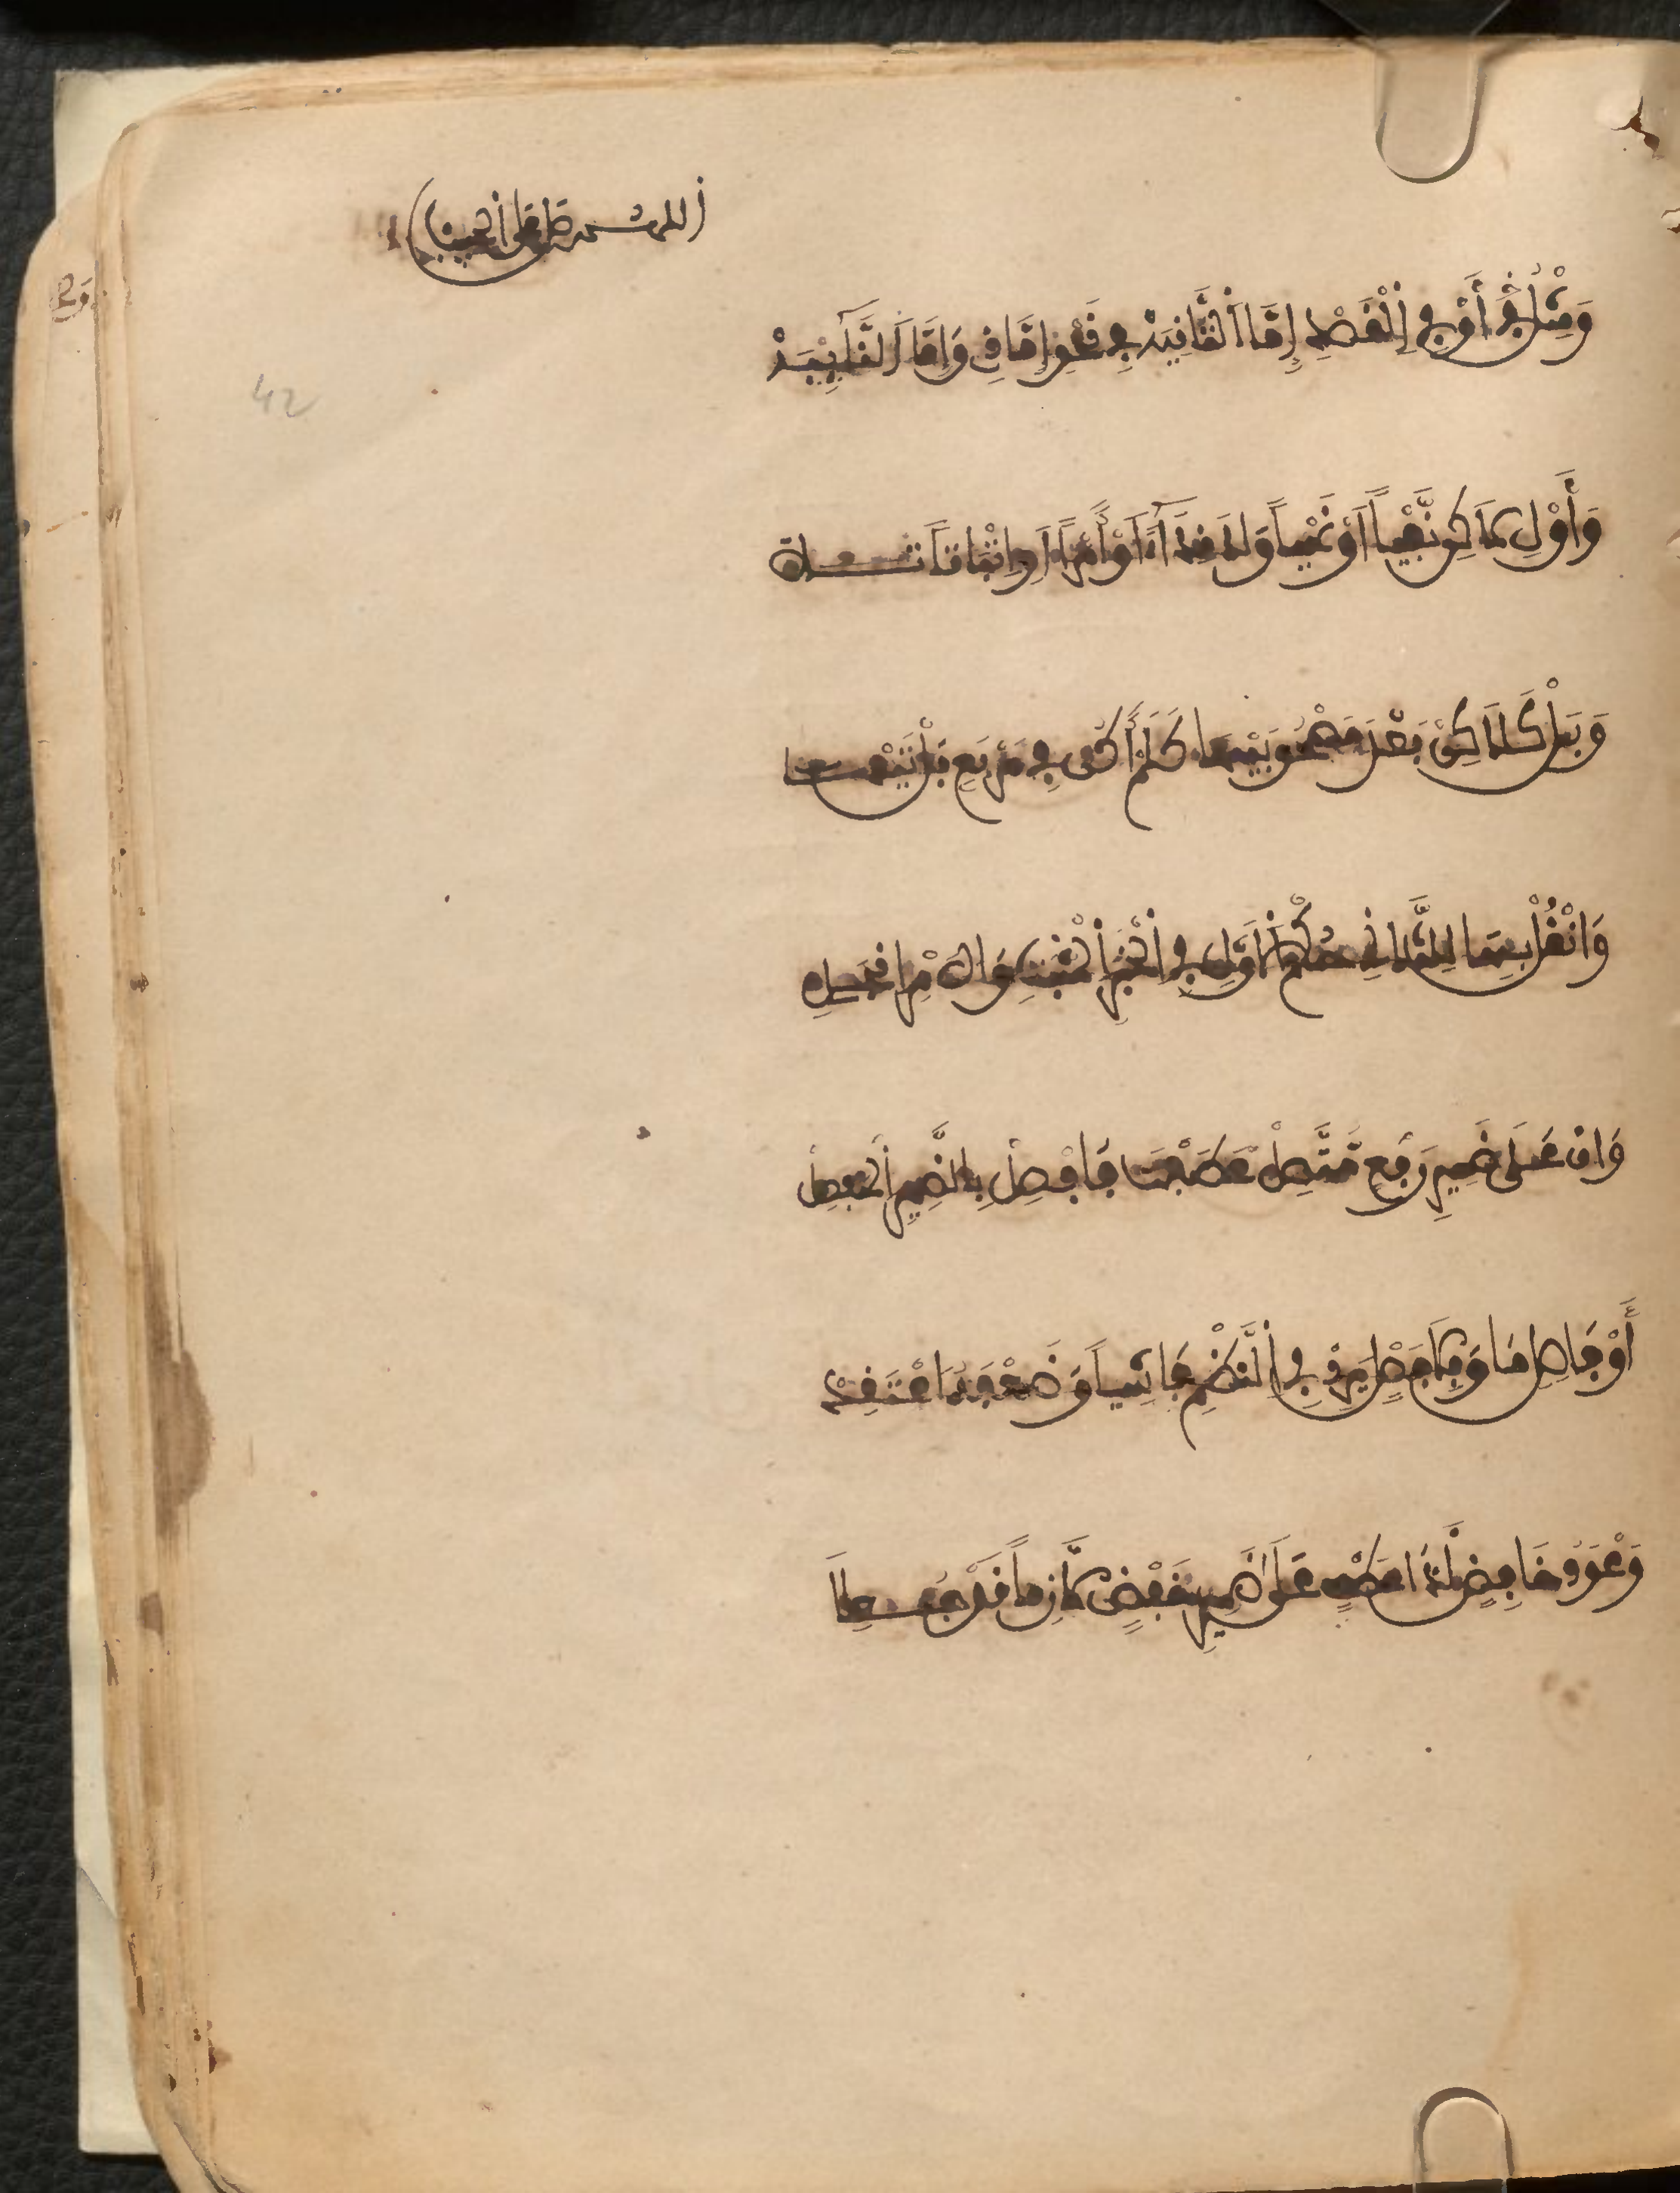 وَمِثْلُ أَوْ فِي اِلْقَصْدِ إِمَّا اَلثَّانِيَهْ فِي نَحْوِ إِمَّا ذِي وَإِمَّا اَلنَّآئِيَهْ
وَأَوْلِ لَكِنْ نَّفْياً اَوْ نَهْياً وَلَا نِدَآءً اَوْ أَمْراً اَوِ اِثْبَاتاً تَلَا
وَبَلْ كَلَكِنْ بَعْدَ مَصْحُوبَيْهَا كَلَمْ أَكُنْ فِي مَرْبَعٍ بَلْ تَيْهَا
وَانْقُلْ بِهَا لِلثَّانِ حُكْمَ اَلْأَوَّلِ فِي اِلْخَبَرِ اِلْمُثْبَتِ وَالْأَمْرِ اِلْجَلِي
وَإِنْ عَلَى ضَمِيرِ رَفْعٍ مُّتَّصِلْ عَطَفْتَ فَافْصِلْ بِالضَّمِيرِ اِلْمُنْفَصِلْ
أَوْ فَاصِلٍ مَا وَبِلَا فَصْلٍ يَرِدْ فِي اِلنَّظْمِ فَاشِياً وَضَعْفَهُ اعْتَقِدْ
وَعَوْدُ خَافِضٍ لَّدَى عَطْفٍ عَلَى ضَمِيرِ خَفْضٍ لَازِماً قَدْ جُعِلَا
42